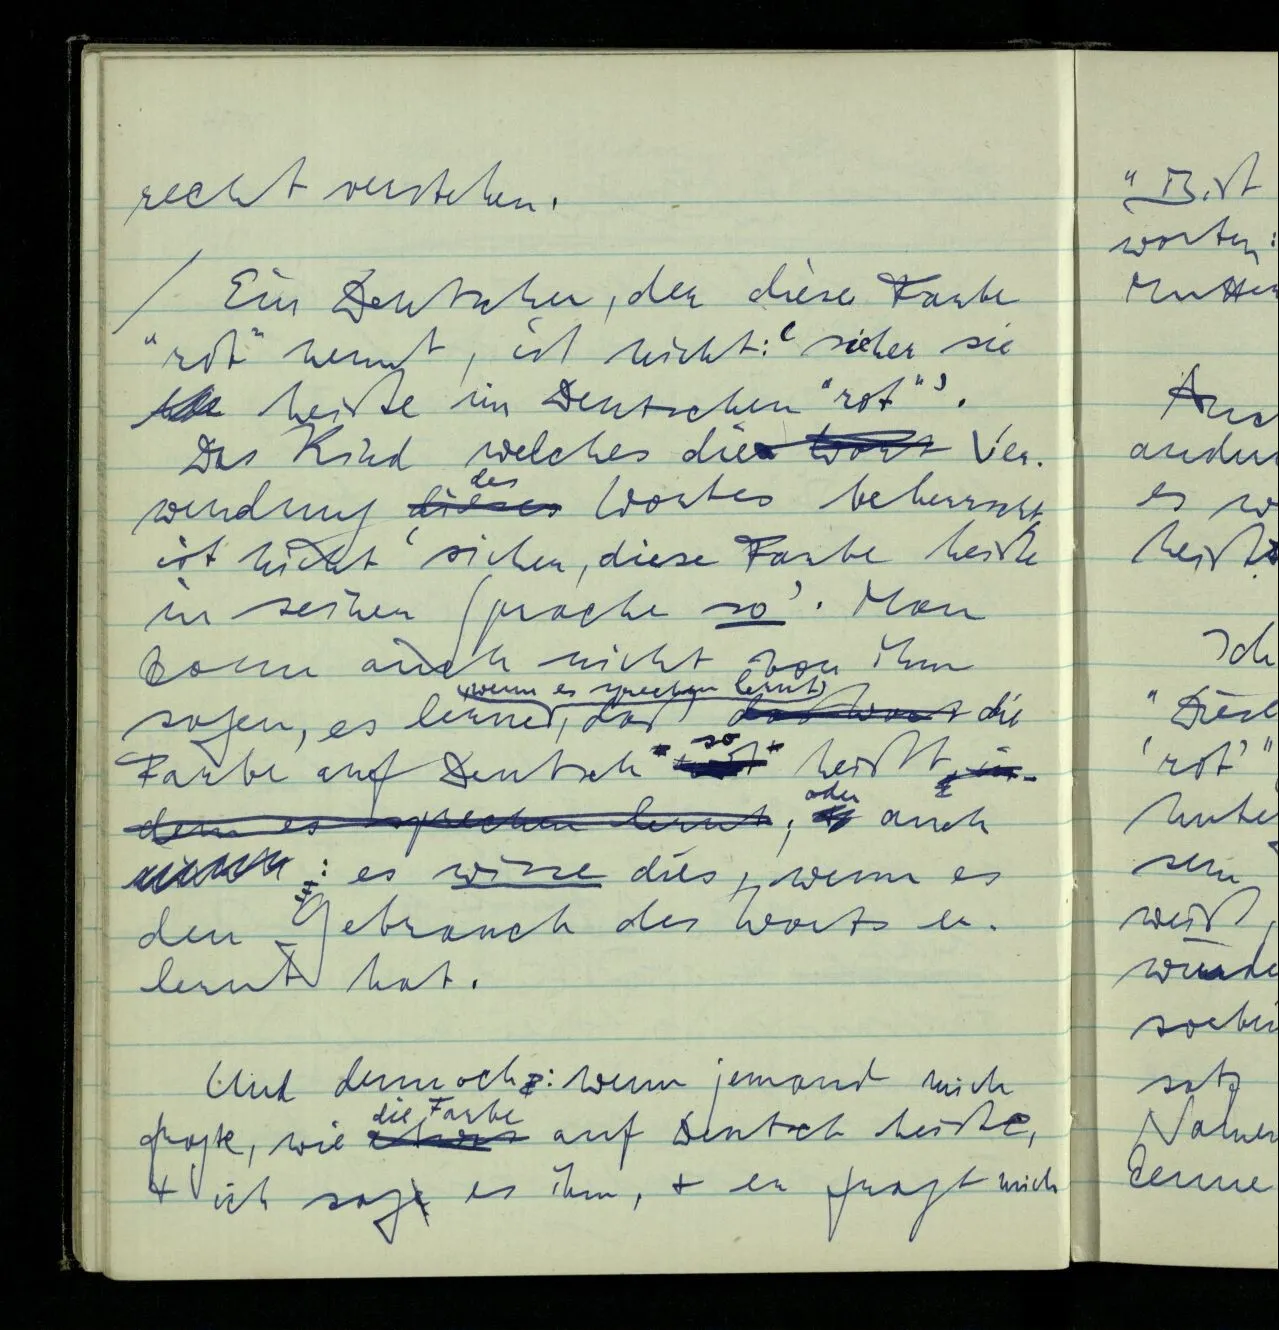 recht verstehen.
/ Ein Deutscher, der diese Farbe
"rot" nennt, ist nicht: 'sicher sie
heiße im Deutschen "rot"'.
Das Kind welches die Ver-
wendung des Wortes beherrscht
ist nicht 'sicher, diese Farbe heiße
in seiner Sprache so'. Man
kann auch nicht von ihm
(wenn es sprechen lernt)
sagen, es lerne, daß die
Farbe auf Deutsch so heißt
dem es sprechen lernt; oder auch
: es wisse dies, wenn es
den Gebrauch des Worts er-
lernt hat.
Und dennoch: wenn jemand mich
fragte, wie die Farbe auf Deutsch heiße,
+ ich sag es ihm, + er fragt mich
"Bist
worten:
Mutter
Auc
andere
es w
heißt
Ich
"Dies
'rot'"
hinte
sein
weiß,
würde
soebe
satz
Namen
kenne